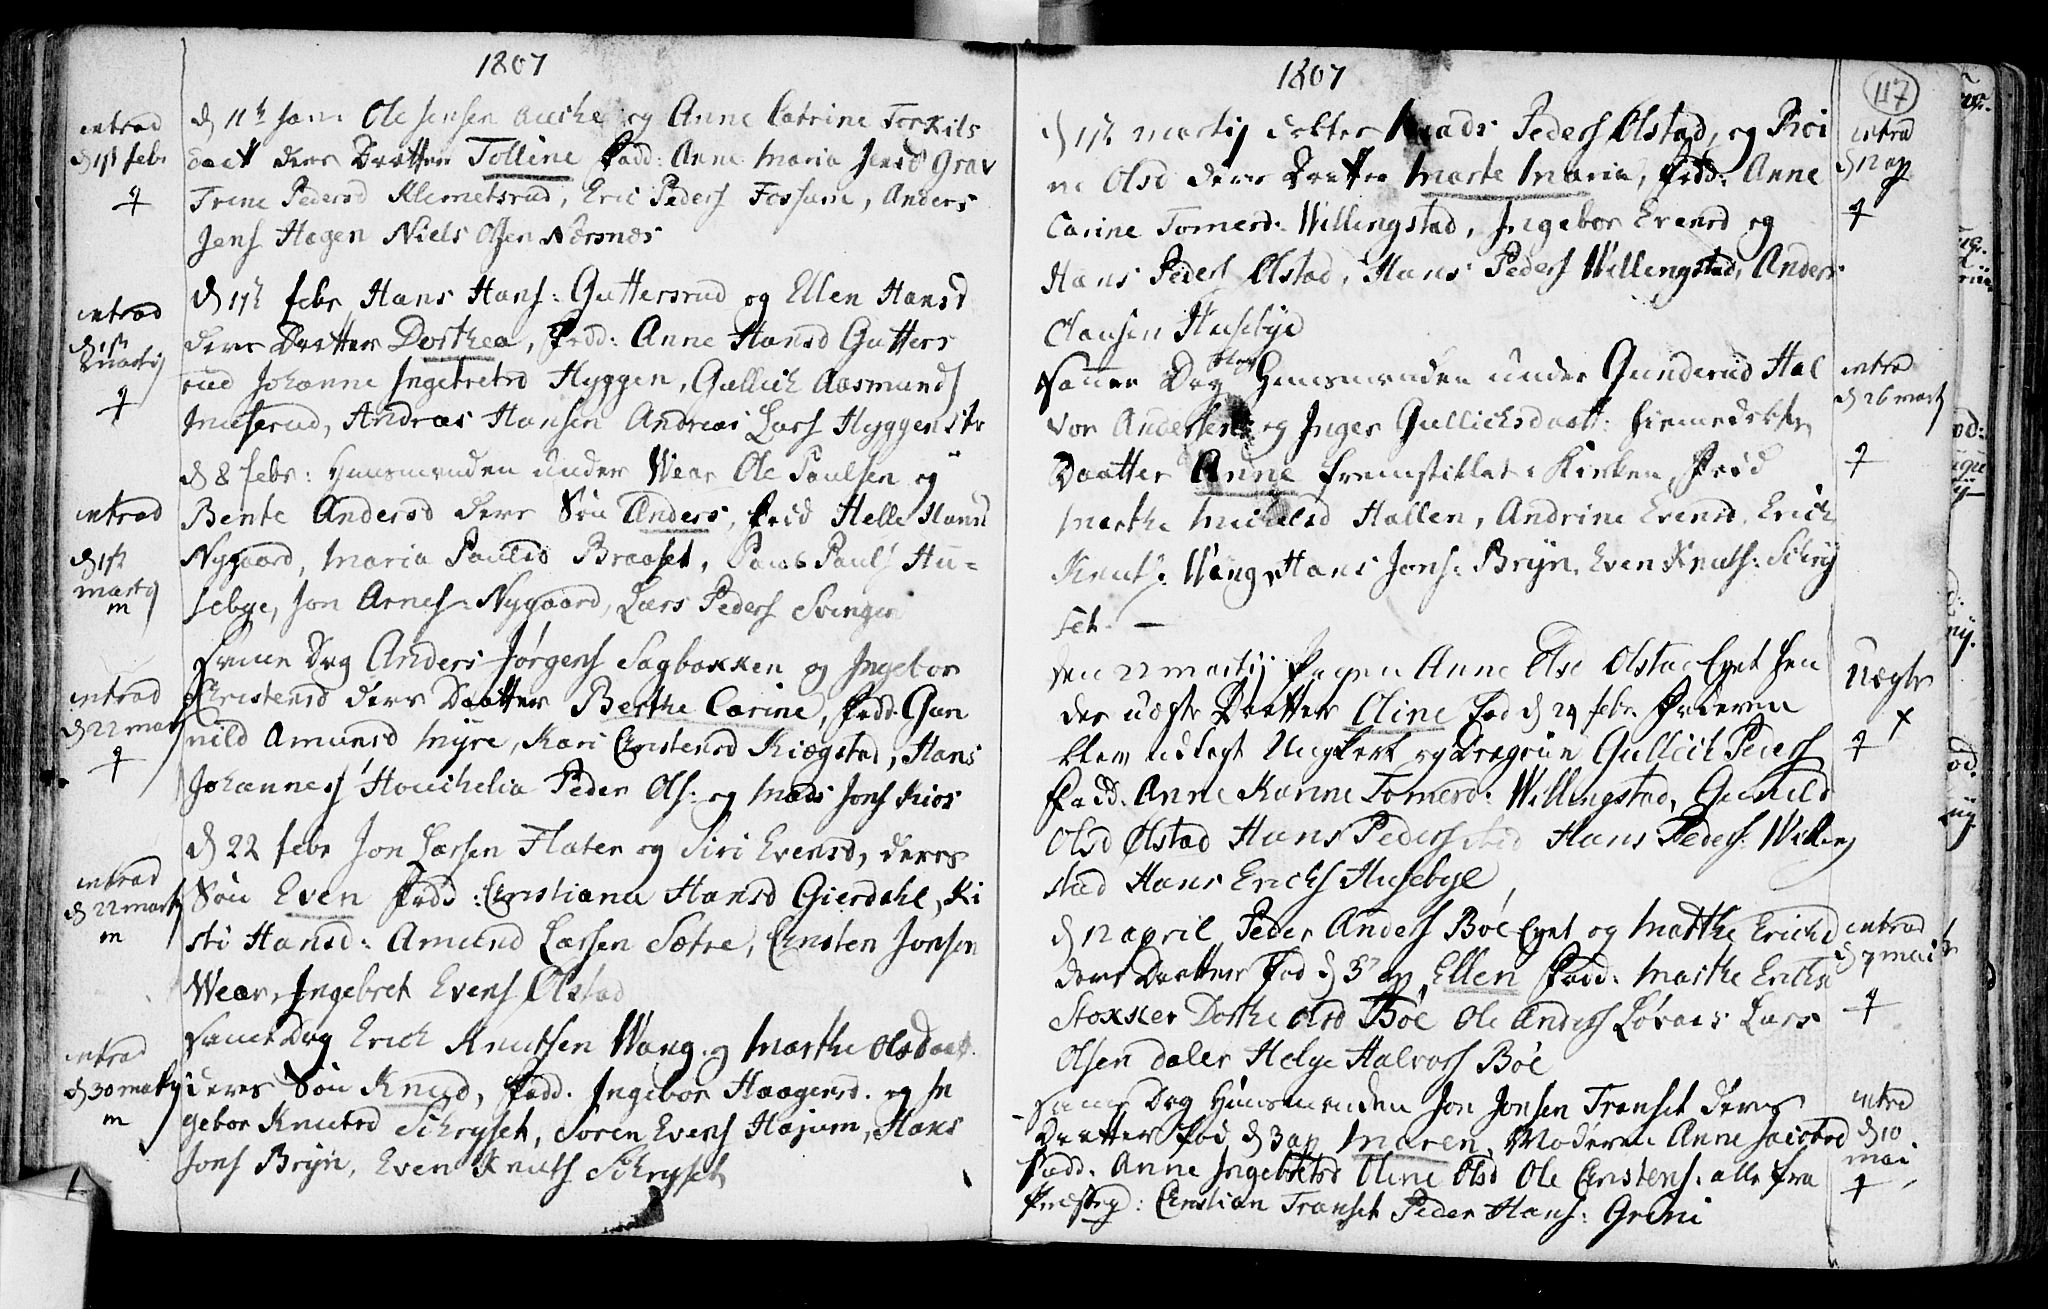 1807
intrad
d 1st febr
♀
d 11te Jan: Ole Jensen Auche og Anne Catrine Torkils
daat ders Daatter Tolline Fadd: Anne Maria Jensd Grav
Trine Pedersd Klemetsrud, Eric Peders Fossum, Anders
Jens Hagen Niels Olsen Nærsnæs
intrad
d 1st
Martij
♀
d 1ste febr Hans Hans: Guttersrud og Ellen Hansd
ders Daatter Dorthea, Fadd: Anne Hansd Gutters
rud Johanne Ingebretsd Hyggen, Gullich Aasmunds
Andreas Hansen Andreas Lars Hyggen
intrad
d 1ste
martij
m
d 8 febr: Huusmanden under Wear Ole Paulsen og
Bente Andersd ders Søn Anders, Fad Helle Hansd
Nygaard, Maria Paulsd Braaset, Pauls Hu-
sebye, Jon Arnes: Nygaard, Lars Peders Svingen
intrad
d 22 mart
♀
Samme Dag Anders Jørgens Sagbakken og Ingebor
Christensd ders Daatter Berthe Carine, Fadd: Gun
nild Amunsd Myre, Kari Christensd Kiøgstad, Hans
Johannes Houchelia Peder Ols: og Mads Jons Kios
intrad
d 22 martij
m
d 22 febr Jon Larsen Flaten og Siri Evensd, deres
Søn Even Fadd: Christiana Hansd Gierdahl, Ki
sti Hansd: Amund Larsen Sætre, Christen Jonsen
Wear, Ingebret Evens Olstad
intrad
d 30 martij
m
Samme Dag Erich Knutsen Wang og Marthe Olsdaat.
ders Søn Knud, Fadd. Ingebor Haagensd. og In
gebor Knutsd Schryset, Søren Evens Højum, Hans
Jons Bryn, Even Knuts Schryset
1807
117
intrad
d 12 ap
♀
d 15te martij døbter Mads Peders Olstad, og Kiri
ne Olsd ders Daatter Marte Maria, Fadd: Anne
Carine Tomersd: Willingstad, Ingebor Evensd og
Hans Peders Olstad, Hans Peders Willingstad, Anders
Clausen Husebye
intrad
d 26 martij
♀
Samme Dag Huusmanden under Gunderud Hal
vor Andersens og Inger Gullichsdaatt: hiemmedøbte
Daatter Anne fremstillet i Kirken, Fad
Marthe Michelsd Hallen, Andrine Evensd, Erich
Knuts: Wang, Hans Jons: Bryn, Even Knuts: Schry
set. —
Uægte
♀ x
den 22 martij Pigen Anne Olsd Olstad Eyet hen
des uægte Daatter Oline Fød d 24 febr. Faderen
blev udlagt Ungkarl og Dragoun Gullich Peders
Fadd. Anne Karine Tomersd: Willingstad, Gunild
Olsd Olstad Hans Peders Hans Peders: Willing
stad Hans Erichs Husebye,
intrad
d 7 mai
♀
d 12 april Peder Anders Bøe Eyet og Marthe Erichsd
ders Daatter Fød d 3de ap. Ellen Fadd: Marthe Erichsd
Stokker Dorthe Olsd Bøe Ole Anders Løkaas Lars
Olsen Daler Helge Halvors Bøe
intrad
d 10
mai
♀
Samme Dag Huusmanden Jon Jonsen Transet ders
Daatter Fød d 3 ap Maren, Moderen Anne Jacobsd
Fadd. Anne Ingebretsd Oline Olsd Ole Christens: alle fra
Christian Transet Peder Hans: Greni